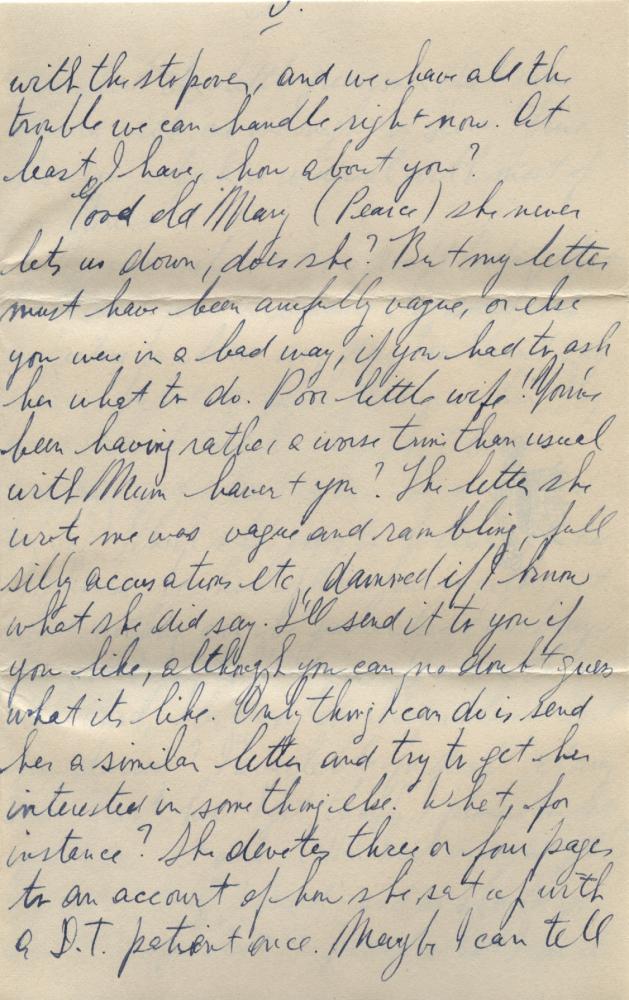 V.
with the stopover, and we have all the
trouble we can handle right now. At
least, I have, how about you?
Good old Mary (Pearce) she never
lets us down, does she? But my letter
must have been awfully vague, or else
you were in a bad way, if you had to ask
her what to do. Poor little wife! You've
been having rather a worse time than usual
with Mum haven't you? The letter she
wrote me was vague and rambling, full
silly accusations etc, damned if I know
what she did say. I'll send it to you if
you like, although you can no doubt guess
what its like. Only thing I can do is send
her a similar letter and try to get her
interested in something else. What, for
instance? She devotes three or four pages
to an account of how she sat up with
a D.T. patient once. Maybe I can tell